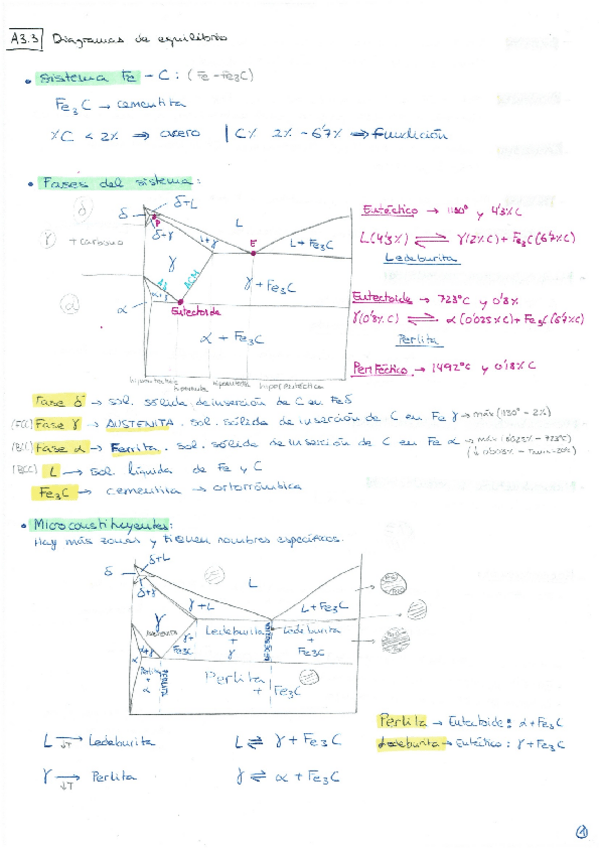 A3.3 Diagramas de equilibrio
• Sistema Fe - C: (Fe - Fe₃C)
Fe₃C → cementita
%C < 2% ⇒ acero | C% 2% - 6'7% ⇒ Fundición
• Fases del sistema:
δ
δ+L
δ
P
L
δ+γ
γ+L
E
L+Fe₃C
γ
+ carbono
γ
A3
ACM
γ + Fe₃C
α
α+γ
α
Eutectoide
α + Fe₃C
Eutéctico → 1130° y 4'3%C
L(4'3%) ⇌ γ(2%C) + Fe₃C(6'7%C)
Ledeburita
Eutectoide → 723°C y 0'8%
γ(0'8%C) ⇌ α(0'025%C) + Fe₃C(6'7%C)
Perlita
Peritéctico → 1492°C y 0'18%C
Fase δ → sol. sólida de inserción de C en Fe δ
(FCC) Fase γ → AUSTENITA. sol. sólida de inserción de C en Fe γ → máx (1130° - 2%)
Fase α → Ferrita. sol. sólida de inserción de C en Fe α → máx (0'025% - 723°C)
(BCC) L → sol. líquida de Fe y C
Fe₃C → cementita → ortorrómbica
• Microconstituyentes:
Hay más zonas y tienen nombres específicos.
δ
δ+L
L
δ+γ
γ+L
L+Fe₃C
γ
AUSTENITA
γ+
Fe₃C
Ledeburita
+
γ
Ledeburita
+
Fe₃C
α
α+γ
Perlita
+
α
PERLITA
Perlita
+ Fe₃C
Perlita → Eutectoide: α+Fe₃C
Ledeburita → Eutéctico: γ+Fe₃C
L →↓T Ledeburita L ⇌ γ + Fe₃C
γ →↓T Perlita γ ⇌ α + Fe₃C
1